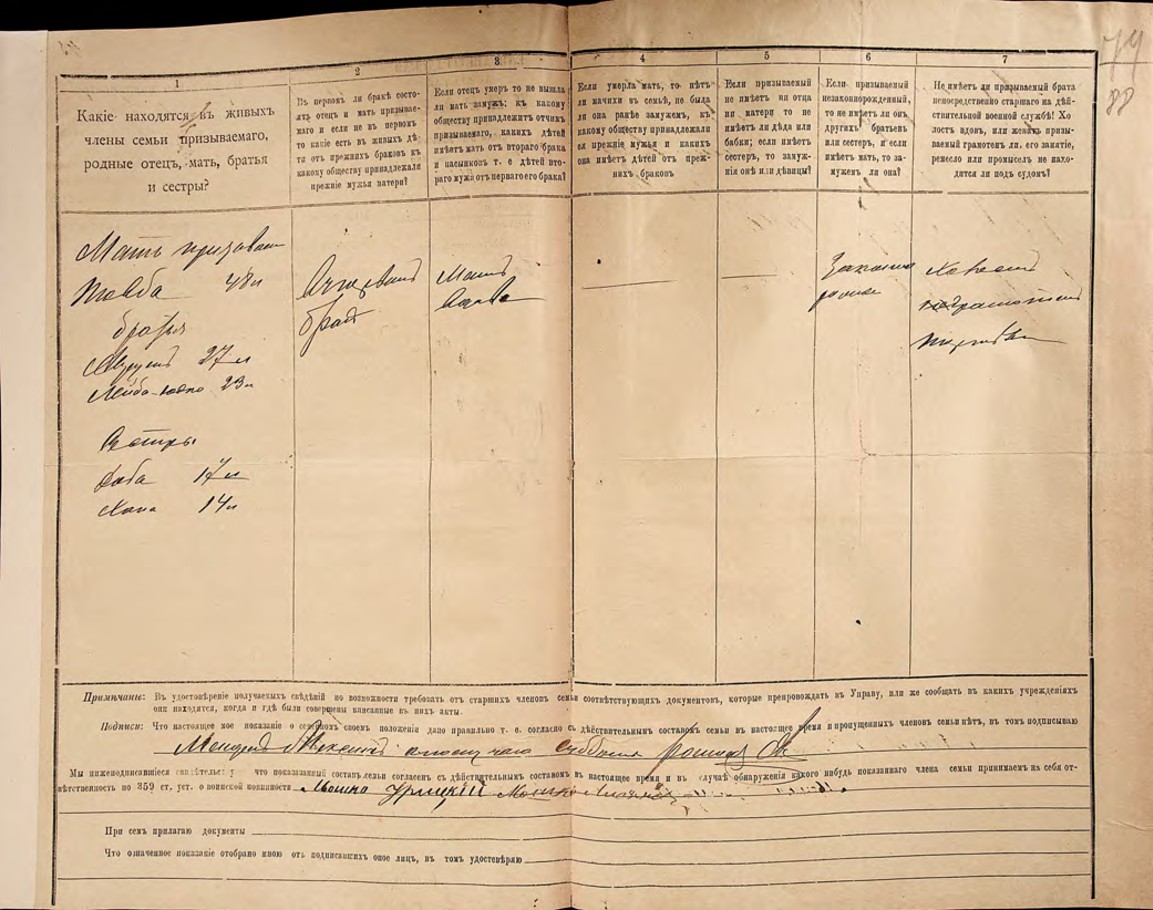 74
88
1
2
3
4
5
6
7
Какіе находятся въ живыхъ
члены семьи призываемаго,
родные отецъ, мать, братья
и сестры?
Въ первомъ ли бракѣ состо-
ятъ отецъ и мать призывае-
маго и если не въ первомъ
то какіе есть въ живыхъ дѣ-
ти отъ прежнихъ браковъ къ
какому обществу принадлежали
прежніе мужья матери?
Если отецъ умеръ то не вышла
ли мать замужъ; къ какому
обществу принадлежитъ отчимъ
призываемаго, какихъ дѣтей
имѣетъ мать отъ втораго брака
и пасынковъ т. е дѣтей вто-
раго мужа отъ перваго его брака?
Если умерла мать, то нѣтъ
ли мачихи въ семьѣ, не была
ли она ранѣе замужемъ, къ
какому обществу принадлежали
ея прежніе мужья и какихъ
она имѣетъ дѣтей отъ преж-
нихъ браковъ
Если призываемый
не имѣетъ ни отца
ни матери то не
имѣетъ ли дѣда или
бабки; если имѣетъ
сестеръ, то замуж-
нія онѣ или дѣвицы?
Если призываемый
незаконнорожденный,
то не имѣетъ ли онъ
другихъ братьевъ
или сестеръ, и если
имѣетъ мать, то за-
мужемъ ли она?
Не имѣетъ ли призываемый брата
непосредственно старшаго на дѣй-
ствительной военной службѣ! Хо
лостъ вдовъ, или женатъ призы-
ваемый грамотенъ ли. его занятіе,
ремесло или промыселъ не нахо-
дится ли подъ судомъ?
Мать
48 л
братья
27 л
Лейба 23 л
Сестры
17 л
Хана 14 л
Мать
вдова
Примѣчаніе: Въ удостовѣреніе получаемыхъ свѣдѣній по возможности требовать отъ старшихъ членовъ семьи соотвѣтствующихъ документовъ, которые препровождать въ Управу, или же сообщать въ какихъ учрежденіяхъ
они находятся, когда и гдѣ были совершены вписанные въ нихъ акты.
Подписи: Что настоящее мое показаніе о семейномъ своемъ положеніи дано правильно т. е. согласно съ дѣйствительнымъ составомъ семьи въ настоящее время и пропущенныхъ членовъ семьи нѣтъ, въ томъ подписываю
Мы нижеподписавшіеся свидѣтельствуемъ что показанный составъ семьи согласенъ съ дѣйствительнымъ составомъ въ настоящее время и въ случаѣ обнаруженія какого нибудь показаннаго члена семьи принимаемъ на себя от-
вѣтственность по 359 ст, уст. о воинской повинности Мошко Урлицкій Мошко
При семъ прилагаю документы
Что означенное показаніе отобрано мною отъ подписавшихъ оное лицъ, въ томъ удостовѣряю